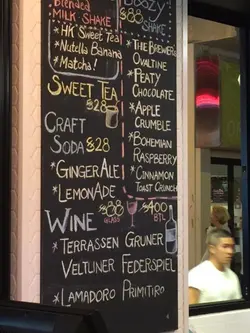 Blended
MILK SHAKE
*HK Sweet Tea
*Nutella Banana
*Matcha!
SWEET TEA
$28
CRAFT
SODA $28
*GINGER ALE
*LEMONADE
BOOZY
$88
SHAKE
*THE BREWER'S
OVALTINE
*PEATY
CHOCOLATE
*APPLE
CRUMBLE
*BOHEMIAN
RASPBERRY
*CINNAMON
TOAST CRUNCH
WINE $88 GLASS $400 BTL
*TERRASSEN GRUNER
VELTLINER FEDERSPIEL
*LAMADORO PRIMITIVO